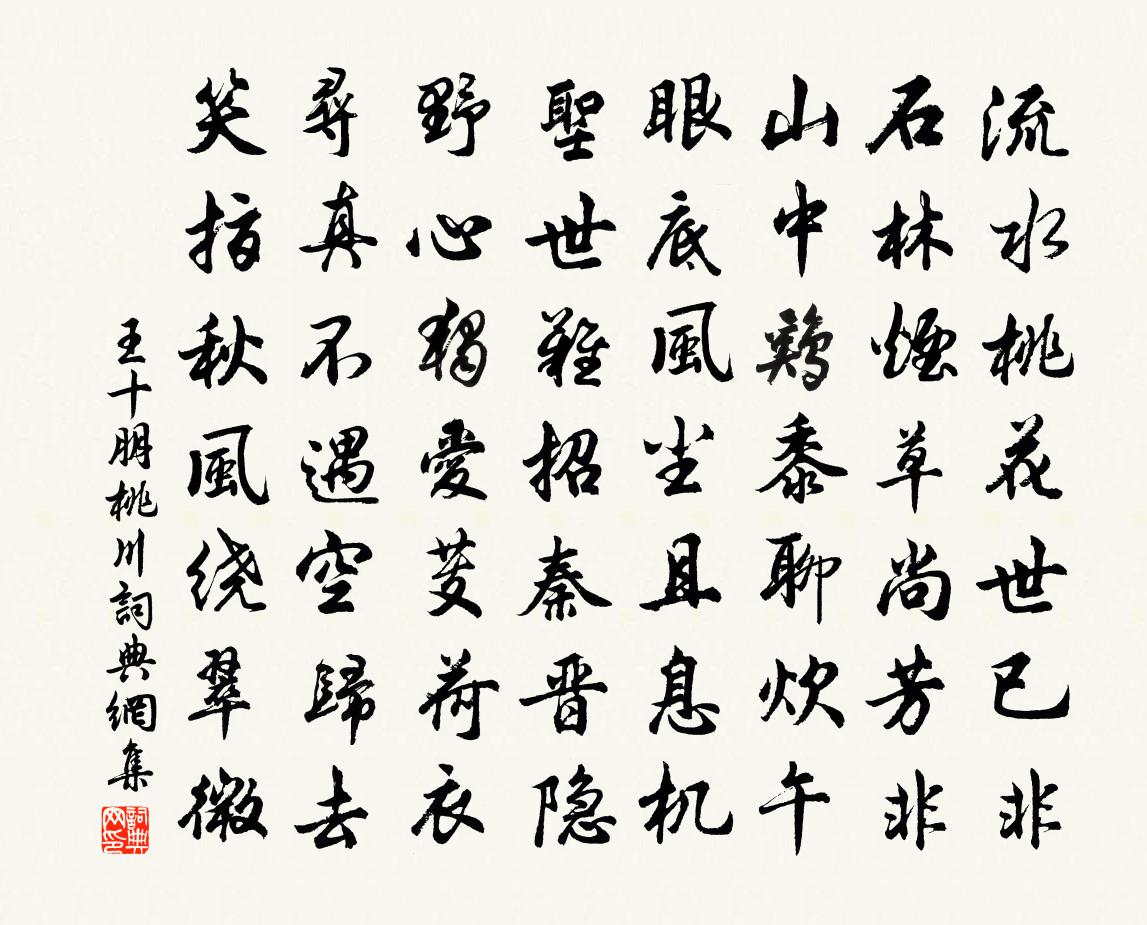 流水桃花世已非
石林煙草尚芳非
山中鷄黍聊炊午
眼底風尘且息机
聖世難招秦晋隐
野心獨愛芰荷衣
尋真不遇空歸去
笑指秋風绕翠微
王十朋桃川詞典網集
詞典网印